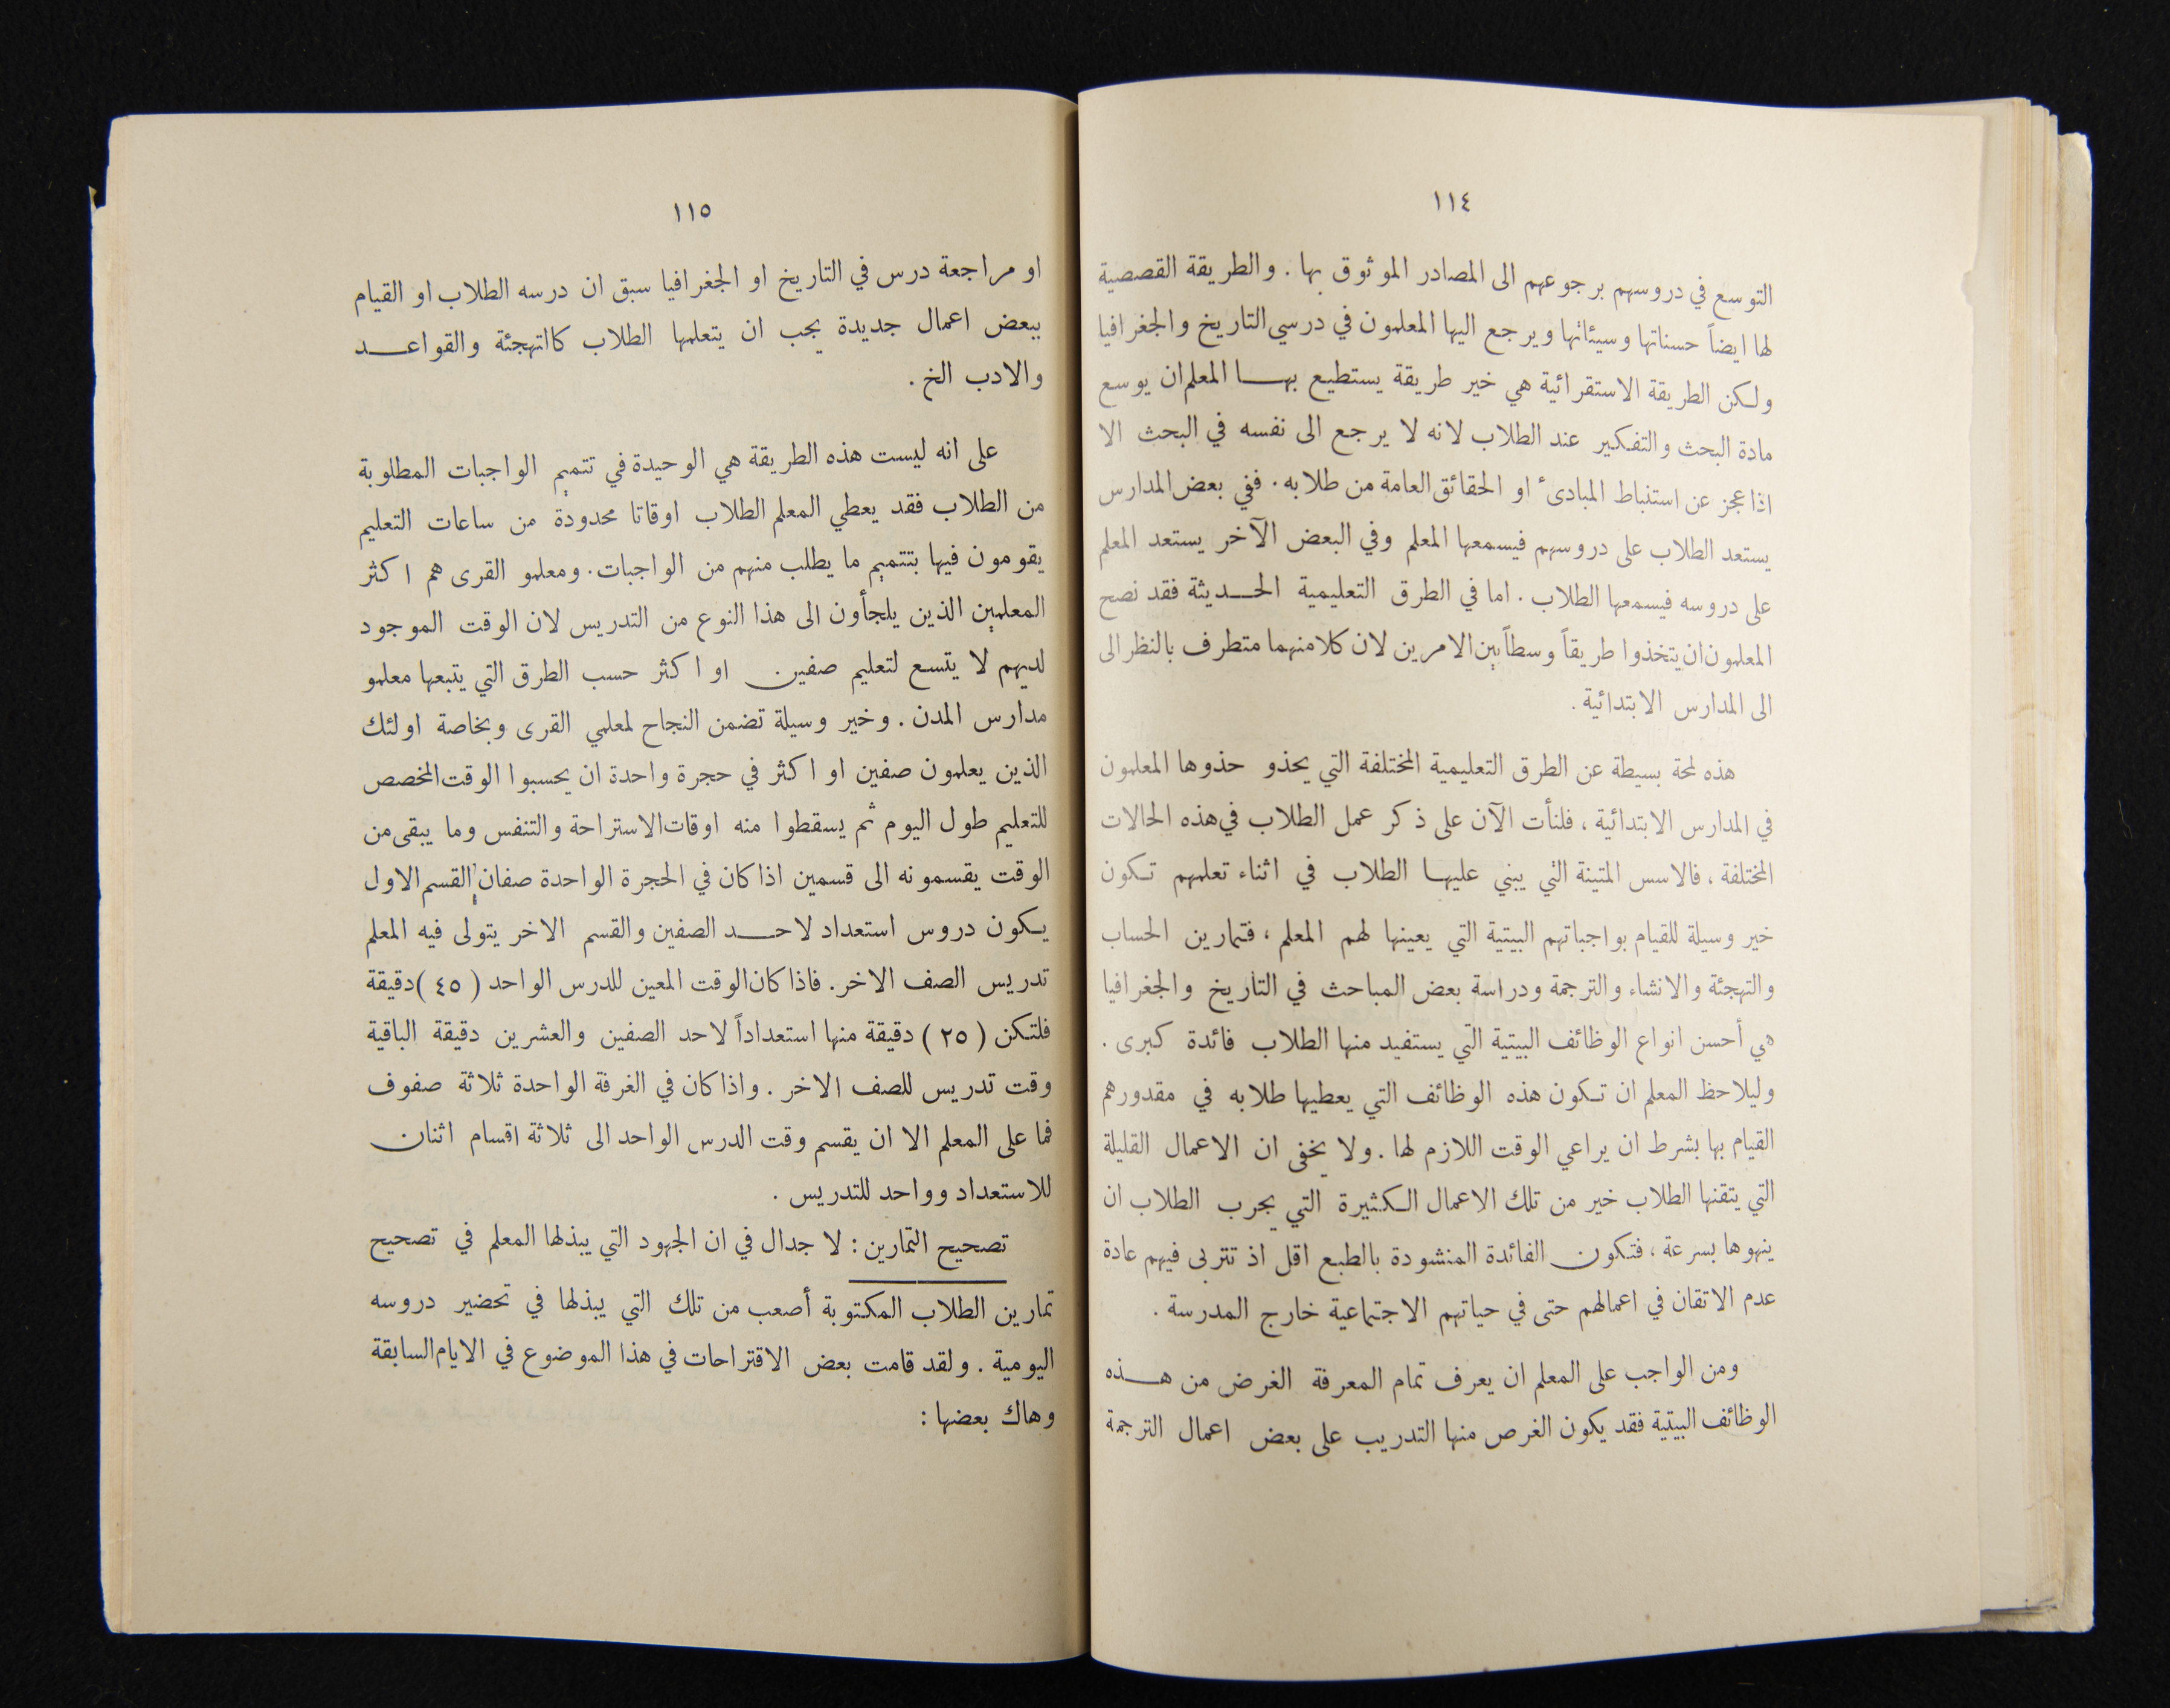 ١١٤
التوسع في دروسهم برجوعهم الى المصادر الموثوق بها . والطريقة القصصية
لها ايضاً حسناتها وسيئاتها ويرجع اليها المعلمون في درسي التاريخ والجغرافيا
ولكن الطريقة الاستقرائية هي خير طريقة يستطيع بها المعلم ان يوسع
مادة البحث والتفكير عند الطلاب لانه لا يرجع الى نفسه في البحث الا
اذا عجز عن استنباط المبادىء او الحقائق العامة من طلابه . ففي بعض المدارس
يستعد الطلاب على دروسهم فيسمعها المعلم وفي البعض الآخر يستعد المعلم
على دروسه فيسمعها الطلاب . اما في الطرق التعليمية الحديثة فقد نصح
المعلمون ان يتخذوا طريقاً وسطاً بين الامرين لان كلا منهما متطرف بالنظر الى
الى المدارس الابتدائية .
هذه لمحة بسيطة عن الطرق التعليمية المختلفة التي يحذو حذوها المعلمون
في المدارس الابتدائية ، فلنأت الآن على ذكر عمل الطلاب في هذه الحالات
المختلفة ، فالاسس المتينة التي يبني عليها الطلاب في اثناء تعلمهم تكون
خير وسيلة للقيام بواجباتهم البيتية التي يعينها لهم المعلم ، فتمارين الحساب
والتهجئة والانشاء والترجمة ودراسة بعض المباحث في التاريخ والجغرافيا
هي أحسن انواع الوظائف البيتية التي يستفيد منها الطلاب فائدة كبرى .
وليلاحظ المعلم ان تكون هذه الوظائف التي يعطيها طلابه في مقدورهم
القيام بها بشرط ان يراعي الوقت اللازم لها . ولا يخفى ان الاعمال القليلة
التي يتقنها الطلاب خير من تلك الاعمال الكثيرة التي يجرب الطلاب ان
ينهوها بسرعة ، فتكون الفائدة المنشودة بالطبع اقل اذ تتربى فيهم عادة
عدم الاتقان في اعمالهم حتى في حياتهم الاجتماعية خارج المدرسة .
ومن الواجب على المعلم ان يعرف تمام المعرفة الغرض من هذه
الوظائف البيتية فقد يكون الغرص منها التدريب على بعض اعمال الترجمة
١١٥
او مراجعة درس في التاريخ او الجغرافيا سبق ان درسه الطلاب او القيام
ببعض اعمال جديدة يجب ان يتعلمها الطلاب كالتهجئة والقواعد
والادب الخ .
على انه ليست هذه الطريقة هي الوحيدة في تتميم الواجبات المطلوبة
من الطلاب فقد يعطي المعلم الطلاب اوقاتا محدودة من ساعات التعليم
يقومون فيها بتتميم ما يطلب منهم من الواجبات . ومعلمو القرى هم اكثر
المعلمين الذين يلجأون الى هذا النوع من التدريس لان الوقت الموجود
لديهم لا يتسع لتعليم صفين او اكثر حسب الطرق التي يتبعها معلمو
مدارس المدن . وخير وسيلة تضمن النجاح لمعلمي القرى وبخاصة اولئك
الذين يعلمون صفين او اكثر في حجرة واحدة ان يحسبوا الوقت المخصص
للتعليم طول اليوم ثم يسقطوا منه اوقات الاستراحة والتنفس وما يبقى من
الوقت يقسمونه الى قسمين اذا كان في الحجرة الواحدة صفان القسم الاول
يكون دروس استعداد لاحد الصفين والقسم الاخر يتولى فيه المعلم
تدريس الصف الاخر . فاذا كان الوقت المعين للدرس الواحد ( ٤٥ ) دقيقة
فلتكن ( ٢٥ ) دقيقة منها استعداداً لاحد الصفين والعشرين دقيقة الباقية
وقت تدريس للصف الاخر . واذا كان في الغرفة الواحدة ثلاثة صفوف
فما على المعلم الا ان يقسم وقت الدرس الواحد الى ثلاثة اقسام اثنان
للاستعداد وواحد للتدريس .
تصحيح التمارين : لا جدال في ان الجهود التي يبذلها المعلم في تصحيح
تمارين الطلاب المكتوبة أصعب من تلك التي يبذلها في تحضير دروسه
اليومية . ولقد قامت بعض الاقتراحات في هذا الموضوع في الايام السابقة
وهاك بعضها :